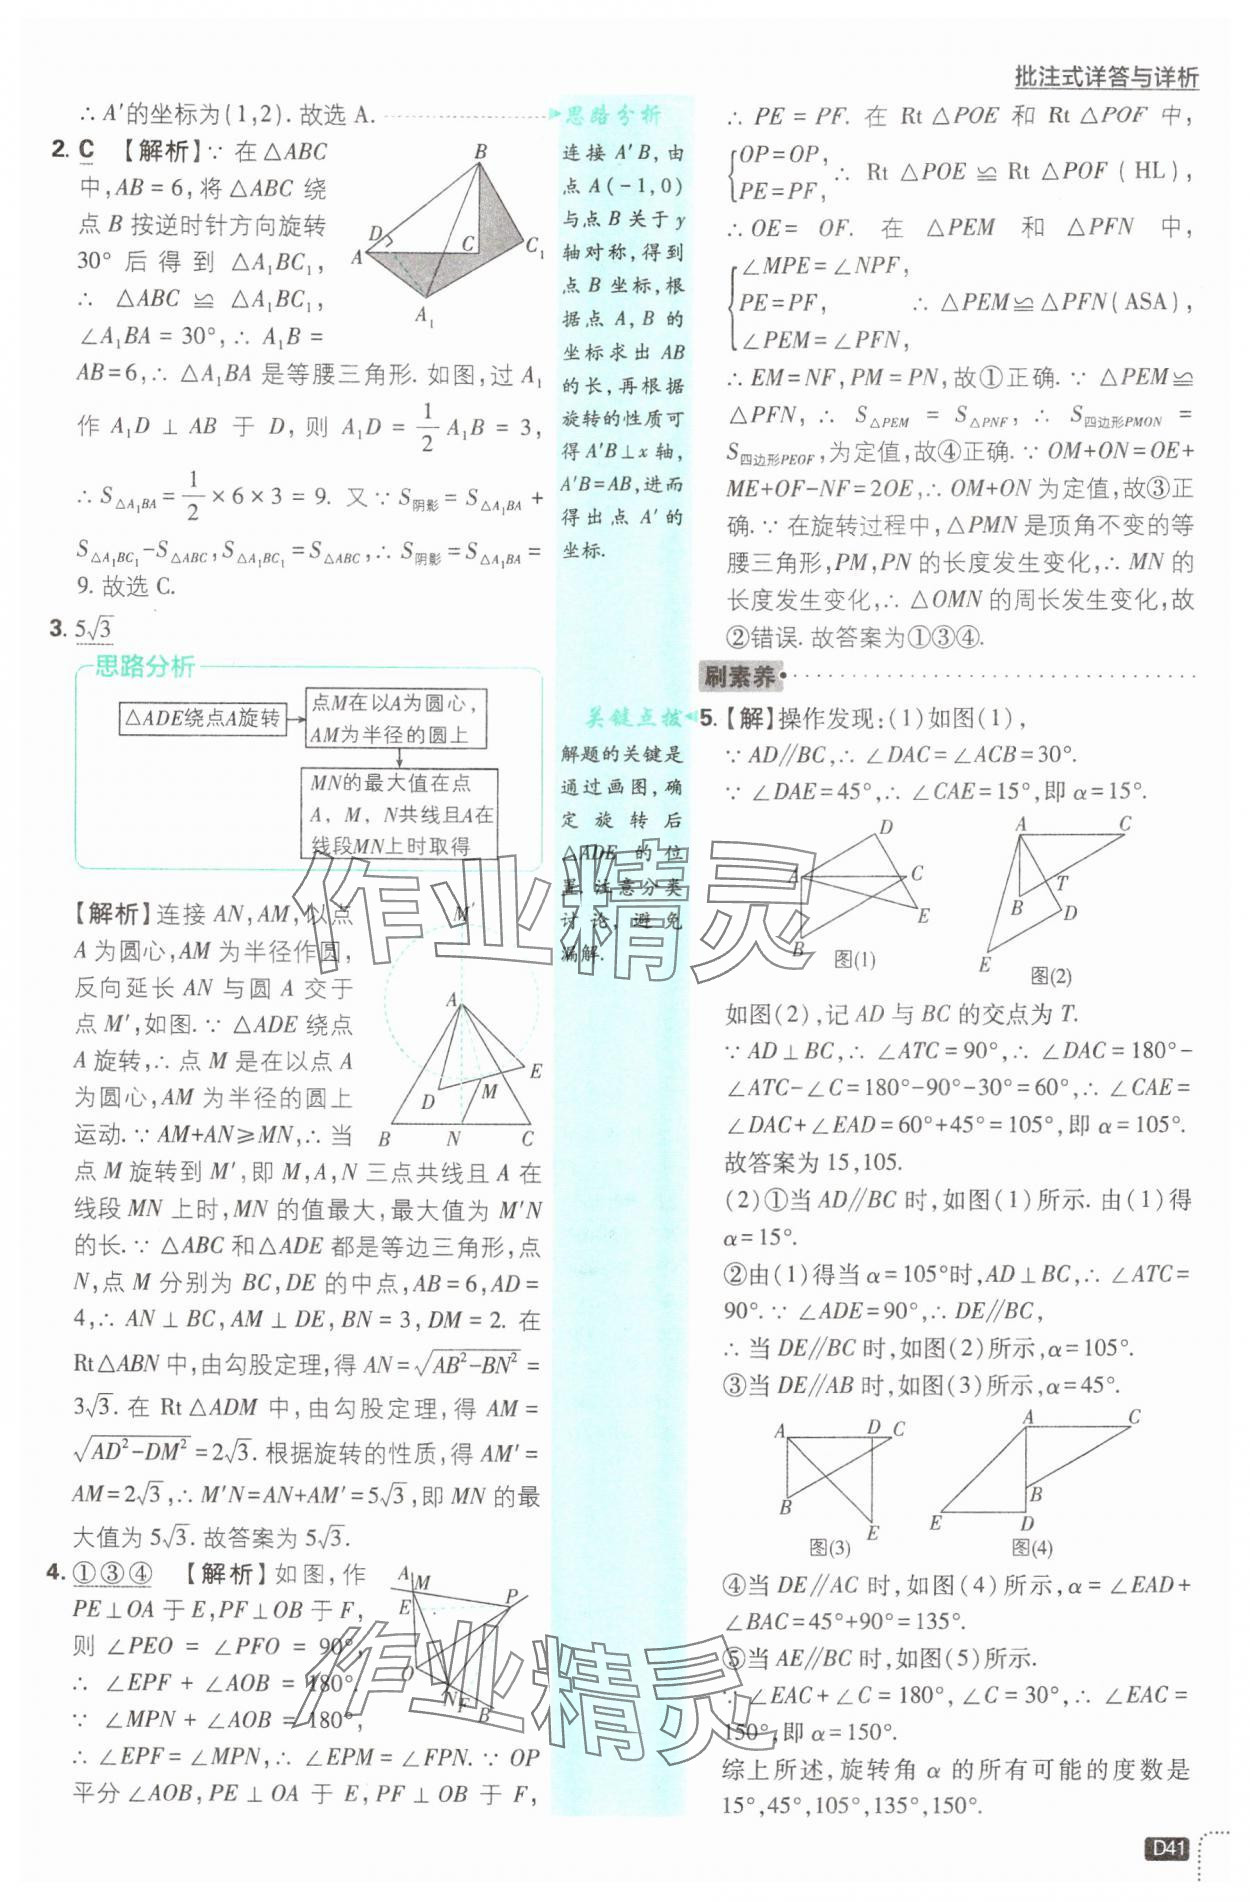 批注式详答与详析
∴ A′的坐标为(1,2). 故选 A.
2. C 【解析】∵ 在△ABC
中,AB=6,将△ABC 绕
点 B 按逆时针方向旋转
30° 后 得 到 △A₁BC₁,
∴ △ABC ≌ △A₁BC₁,
∠A₁BA=30°,∴ A₁B=
AB=6,∴ △A₁BA 是等腰三角形. 如图,过 A₁
作 A₁D ⊥ AB 于 D, 则 A₁D = 1/2 A₁B = 3,
∴ S△A₁BA = 1/2 × 6 × 3 = 9. 又 ∵ S阴影 = S△A₁BA +
S△A₁BC₁ - S△ABC, S△A₁BC₁ = S△ABC, ∴ S阴影 = S△A₁BA =
9. 故选 C.
B
D
A
C
C₁
A₁
3. 5√3
思路分析
△ADE绕点A旋转
点M在以A为圆心,
AM为半径的圆上
MN的最大值在点
A, M, N共线且A在
线段MN上时取得
【解析】连接 AN,AM,以点
A 为圆心,AM 为半径作圆,
反向延长 AN 与圆 A 交于
点 M′,如图. ∵ △ADE 绕点
A 旋转,∴ 点 M 是在以点 A
为圆心,AM 为半径的圆上
运动. ∵ AM+AN≥MN,∴ 当
点 M 旋转到 M′,即 M,A,N 三点共线且 A 在
线段 MN 上时,MN 的值最大,最大值为 M′N
的长. ∵ △ABC 和△ADE 都是等边三角形,点
N,点 M 分别为 BC,DE 的中点,AB=6,AD=
4,∴ AN ⊥ BC,AM ⊥ DE,BN = 3,DM = 2. 在
Rt△ABN 中,由勾股定理,得 AN=√(AB²-BN²) =
3√3. 在 Rt △ADM 中,由勾股定理,得 AM =
√(AD²-DM²) =2√3. 根据旋转的性质,得 AM′=
AM=2√3,∴ M′N=AN+AM′=5√3,即 MN 的最
大值为 5√3. 故答案为 5√3.
M′
A
E
D
M
B
N
C
4. ①③④ 【解析】如图,作
PE⊥OA 于 E,PF⊥OB 于 F,
则 ∠PEO = ∠PFO = 90°,
∴ ∠EPF + ∠AOB = 180°.
∵ ∠MPN + ∠AOB = 180°,
∴ ∠EPF=∠MPN,∴ ∠EPM=∠FPN. ∵ OP
平分∠AOB,PE⊥OA 于 E,PF⊥OB 于 F,
A
M
E
P
O
N
F
B
思路分析
连接 A′B,由
点 A(-1,0)
与点 B 关于 y
轴对称,得到
点 B 坐标,根
据点 A,B 的
坐标求出 AB
的长,再根据
旋转的性质可
得 A′B⊥x 轴,
A′B=AB,进而
得出点 A′的
坐标.
关键点拨
解题的关键是
通过画图,确
定旋转后
△ADE 的位
置. 注意分类
讨论,避免
漏解.
∴ PE = PF. 在 Rt △POE 和 Rt △POF 中,
OP=OP,
PE=PF,
∴ Rt △POE ≌ Rt △POF (HL),
∴ OE = OF. 在 △PEM 和 △PFN 中,
∠MPE=∠NPF,
PE=PF,
∴ △PEM≌△PFN(ASA),
∠PEM=∠PFN,
∴ EM=NF,PM=PN,故①正确. ∵ △PEM≌
△PFN, ∴ S△PEM = S△PNF, ∴ S四边形PMON =
S四边形PEOF,为定值,故④正确. ∵ OM+ON=OE+
ME+OF-NF=2OE,∴ OM+ON 为定值,故③正
确. ∵ 在旋转过程中,△PMN 是顶角不变的等
腰三角形,PM,PN 的长度发生变化,∴ MN 的
长度发生变化,∴ △OMN 的周长发生变化,故
②错误. 故答案为①③④.
刷素养
5. 【解】操作发现:(1)如图(1),
∵ AD∥BC,∴ ∠DAC=∠ACB=30°.
∵ ∠DAE=45°,∴ ∠CAE=15°,即 α=15°.
D
A
C
E
B
图(1)
A
C
T
B
D
E
图(2)
如图(2),记 AD 与 BC 的交点为 T.
∵ AD⊥BC,∴ ∠ATC=90°,∴ ∠DAC=180°-
∠ATC-∠C=180°-90°-30°=60°,∴ ∠CAE=
∠DAC+∠EAD=60°+45°=105°,即 α=105°.
故答案为 15,105.
(2)①当 AD∥BC 时,如图(1)所示. 由(1)得
α=15°.
②由(1)得当 α=105°时,AD⊥BC,∴ ∠ATC=
90°. ∵ ∠ADE=90°,∴ DE∥BC,
∴ 当 DE∥BC 时,如图(2)所示,α=105°.
③当 DE∥AB 时,如图(3)所示,α=45°.
A
D
C
B
E
图(3)
A
C
B
E
D
图(4)
④当 DE∥AC 时,如图(4)所示,α=∠EAD+
∠BAC=45°+90°=135°.
⑤当 AE∥BC 时,如图(5)所示.
∵ ∠EAC+∠C=180°,∠C=30°,∴ ∠EAC=
150°,即 α=150°.
综上所述,旋转角 α 的所有可能的度数是
15°,45°,105°,135°,150°.
D41
作业精灵
作业精灵